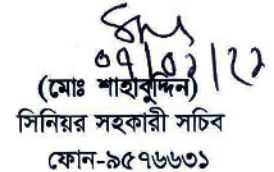 ০৭/০২/২২
(মোঃ শাহাবুদ্দিন)
সিনিয়র সহকারী সচিব
ফোন-৯৫৭৬৬৩১